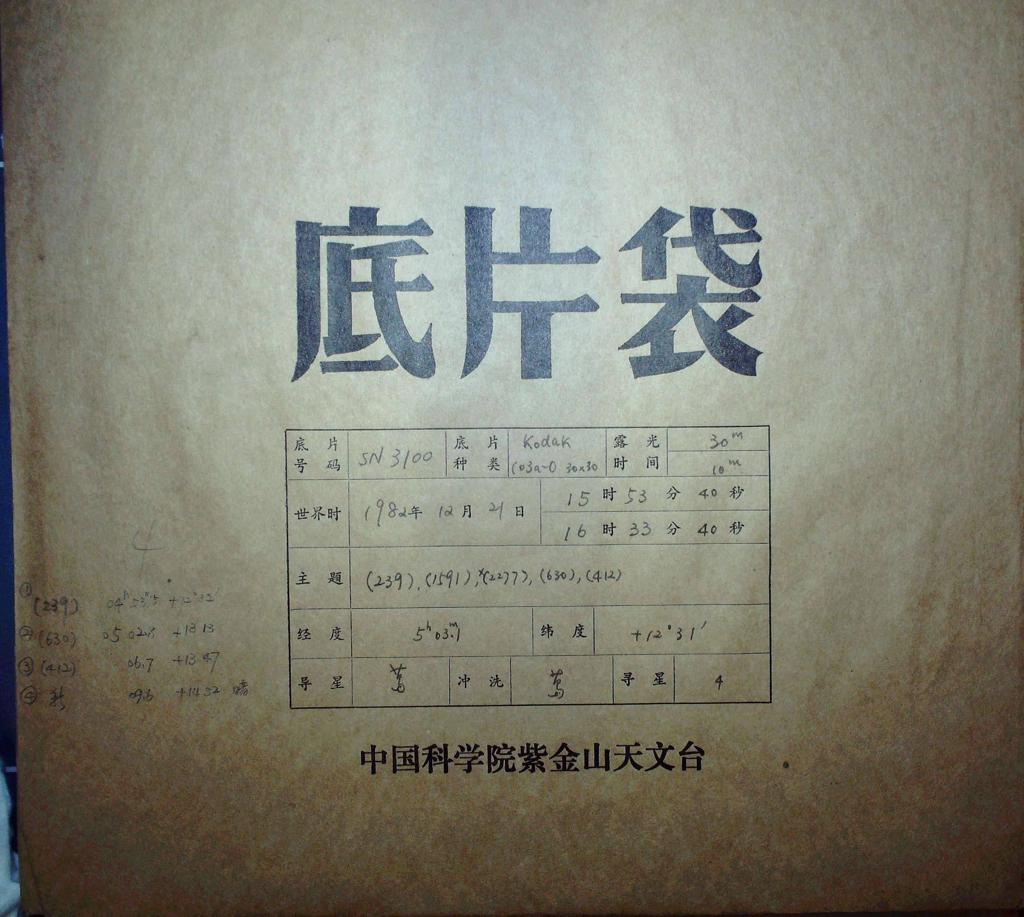 底片袋
底片号码 SN 3100 底片种类 Kodak 103a-O 30×30 露光时间 30m 10m
世界时 1982年 12月 21日 15时 53分 40秒
16时 33分 40秒
主题 (239), (1591), *(2277), (630), (412)
经度 5h 03m.1 纬度 +12°31′
导星 冲洗 寻星 4
中国科学院紫金山天文台
4
① (239) 04h 53m.5 +12°32′
② (630) 05 02.3 +13 13
③ (412) 06.7 +13 47
④ 新 09.6 +14 32